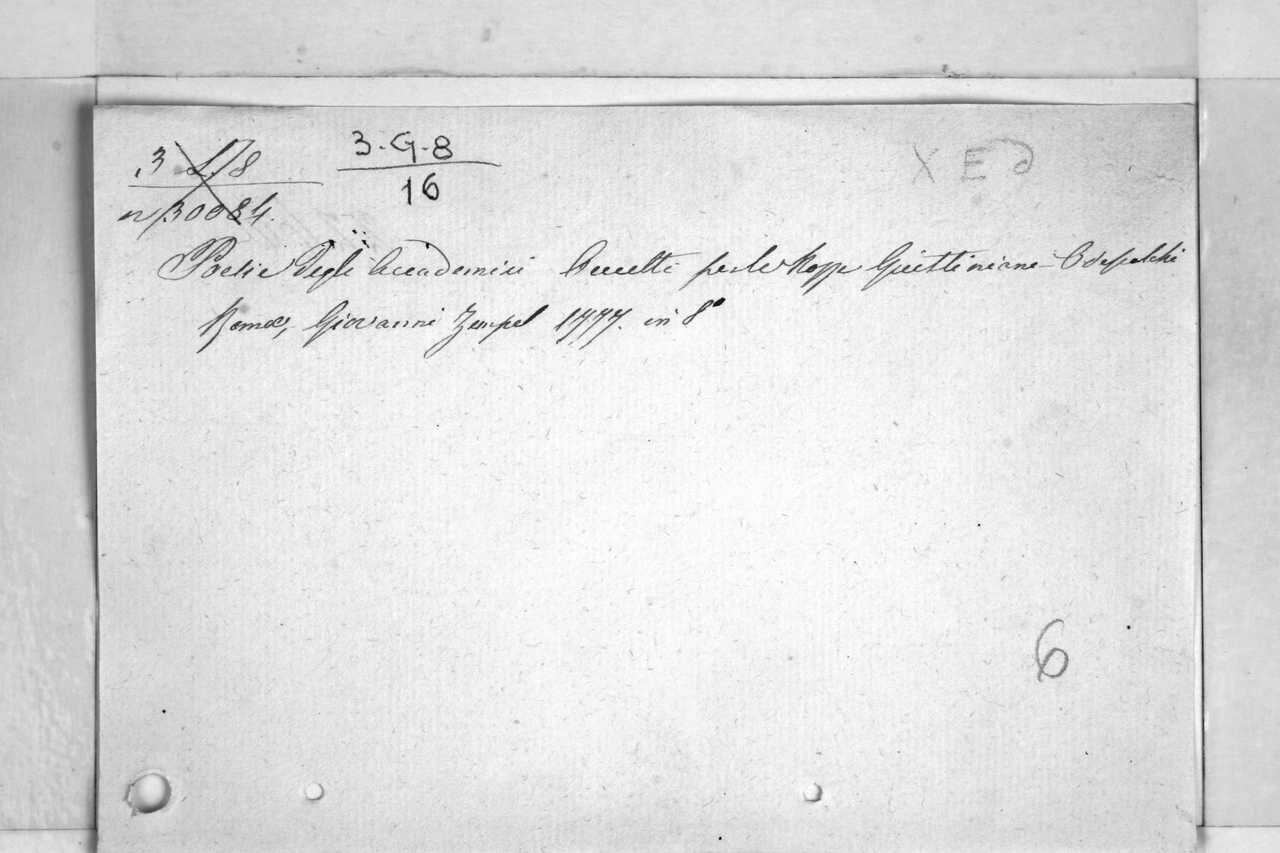 3-G-8
16
n 30084.
X E
Poesie degli Accademici Occulti per le Nozze Giustiniane-Odescalchi
Roma, Giovanni Zempel 1777. in 8º
6